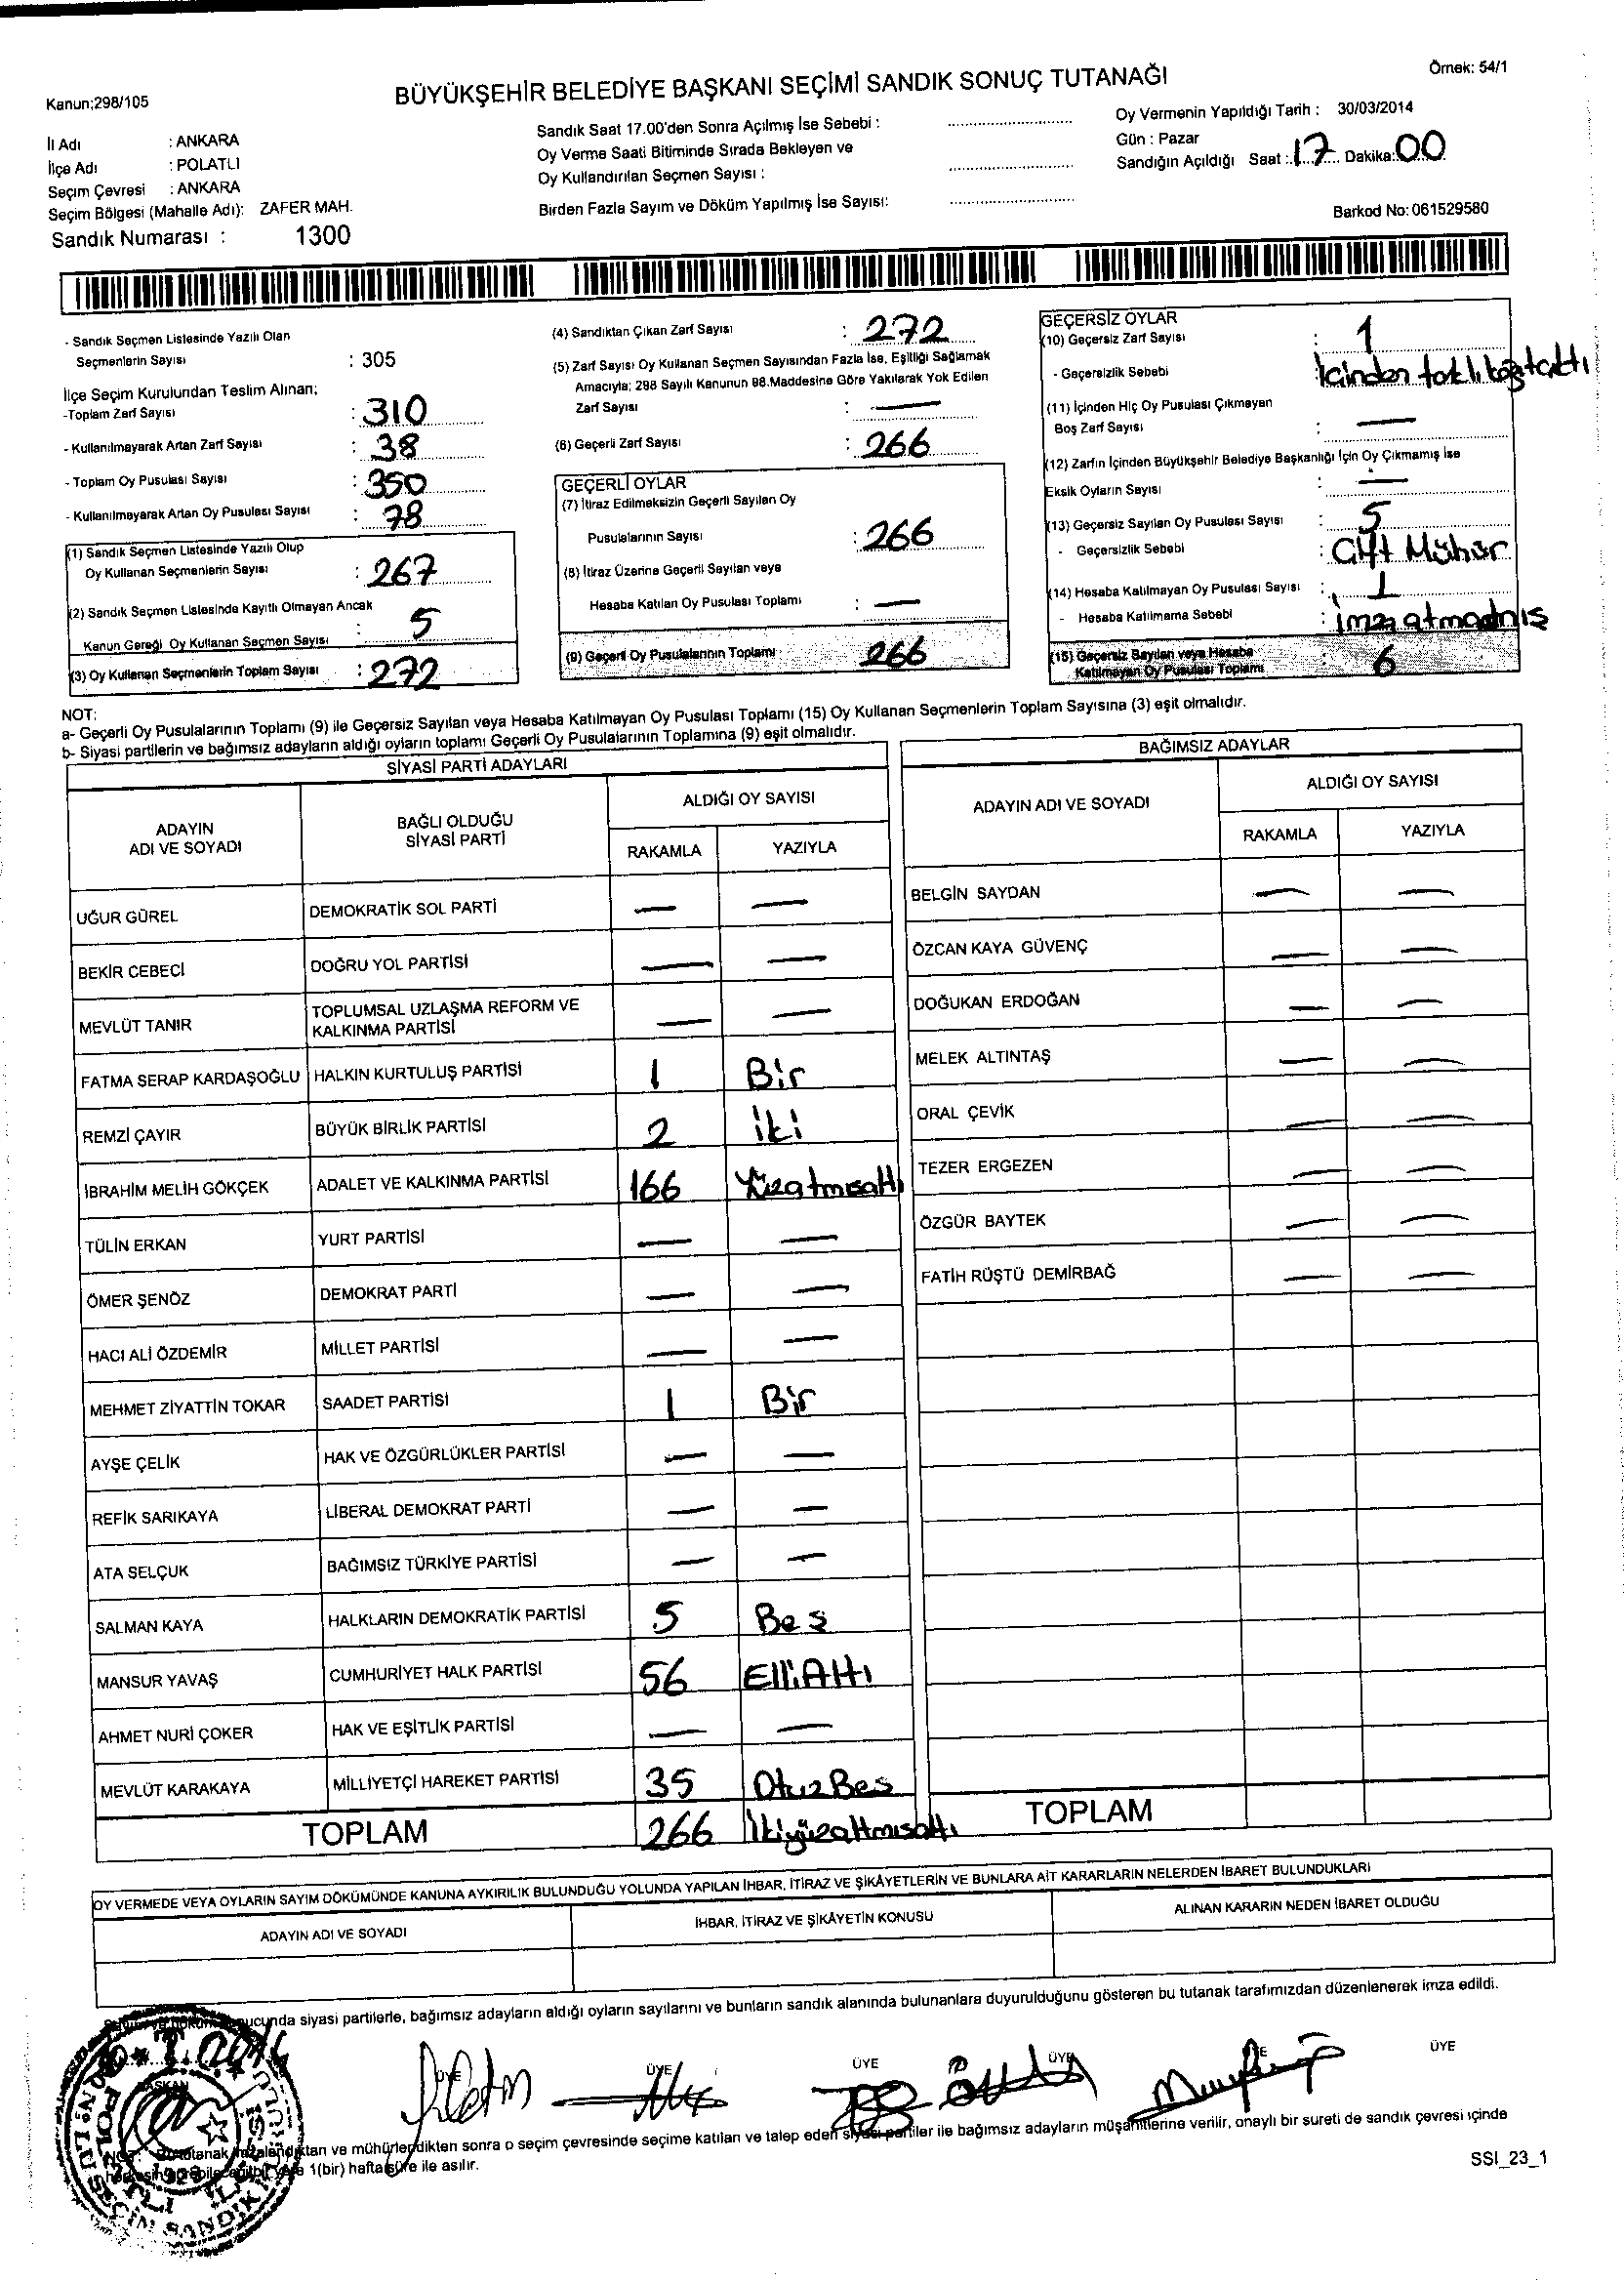 Örnek: 54/1
Kanun;298/105
BÜYÜKŞEHİR BELEDİYE BAŞKANI SEÇİMİ SANDIK SONUÇ TUTANAĞI
İl Adı : ANKARA
İlçe Adı : POLATLI
Seçim Çevresi : ANKARA
Seçim Bölgesi (Mahalle Adı): ZAFER MAH.
Sandık Numarası : 1300
Sandık Saat 17.00'den Sonra Açılmış İse Sebebi :
Oy Verme Saati Bitiminde Sırada Bekleyen ve
Oy Kullandırılan Seçmen Sayısı :
Birden Fazla Sayım ve Döküm Yapılmış İse Sayısı:
Oy Vermenin Yapıldığı Tarih : 30/03/2014
Gün : Pazar
Sandığın Açıldığı Saat : 17 Dakika: 00
Barkod No: 061529580
- Sandık Seçmen Listesinde Yazılı Olan
Seçmenlerin Sayısı : 305
İlçe Seçim Kurulundan Teslim Alınan;
-Toplam Zarf Sayısı : 310
- Kullanılmayarak Artan Zarf Sayısı : 38
- Toplam Oy Pusulası Sayısı : 350
- Kullanılmayarak Artan Oy Pusulası Sayısı : 78
(1) Sandık Seçmen Listesinde Yazılı Olup
Oy Kullanan Seçmenlerin Sayısı : 267
(2) Sandık Seçmen Listesinde Kayıtlı Olmayan Ancak
Kanun Gereği Oy Kullanan Seçmen Sayısı : 5
(3) Oy Kullanan Seçmenlerin Toplam Sayısı : 272
(4) Sandıktan Çıkan Zarf Sayısı : 272
(5) Zarf Sayısı Oy Kullanan Seçmen Sayısından Fazla İse, Eşitliği Sağlamak
Amacıyla; 298 Sayılı Kanunun 98.Maddesine Göre Yakılarak Yok Edilen
Zarf Sayısı : —
(6) Geçerli Zarf Sayısı : 266
GEÇERLİ OYLAR
(7) İtiraz Edilmeksizin Geçerli Sayılan Oy
Pusulalarının Sayısı : 266
(8) İtiraz Üzerine Geçerli Sayılan veya
Hesaba Katılan Oy Pusulası Toplamı : —
(9) Geçerli Oy Pusulalarının Toplamı 266
GEÇERSİZ OYLAR
(10) Geçersiz Zarf Sayısı : 1
- Geçersizlik Sebebi
(11) İçinden Hiç Oy Pusulası Çıkmayan
Boş Zarf Sayısı : —
(12) Zarfın İçinden Büyükşehir Belediye Başkanlığı İçin Oy Çıkmamış İse
Eksik Oyların Sayısı : —
(13) Geçersiz Sayılan Oy Pusulası Sayısı : 5
- Geçersizlik Sebebi : Çift Mühür
(14) Hesaba Katılmayan Oy Pusulası Sayısı : 1
- Hesaba Katılmama Sebebi : imza atmamış
(15) Geçersiz Sayılan veya Hesaba
Katılmayan Oy Pusulası Toplamı : 6
NOT:
a- Geçerli Oy Pusulalarının Toplamı (9) ile Geçersiz Sayılan veya Hesaba Katılmayan Oy Pusulası Toplamı (15) Oy Kullanan Seçmenlerin Toplam Sayısına (3) eşit olmalıdır.
b- Siyasi partilerin ve bağımsız adayların aldığı oyların toplamı Geçerli Oy Pusulalarının Toplamına (9) eşit olmalıdır.
SİYASİ PARTİ ADAYLARI
ADAYIN ADI VE SOYADI BAĞLI OLDUĞU SİYASİ PARTİ ALDIĞI OY SAYISI
RAKAMLA YAZIYLA
UĞUR GÜREL DEMOKRATİK SOL PARTİ — —
BEKİR CEBECİ DOĞRU YOL PARTİSİ — —
MEVLÜT TANIR TOPLUMSAL UZLAŞMA REFORM VE KALKINMA PARTİSİ — —
FATMA SERAP KARDAŞOĞLU HALKIN KURTULUŞ PARTİSİ 1 Bir
REMZİ ÇAYIR BÜYÜK BİRLİK PARTİSİ 2 iki
İBRAHİM MELİH GÖKÇEK ADALET VE KALKINMA PARTİSİ 166 Yüzatmışaltı
TÜLİN ERKAN YURT PARTİSİ — —
ÖMER ŞENÖZ DEMOKRAT PARTİ — —
HACI ALİ ÖZDEMİR MİLLET PARTİSİ — —
MEHMET ZİYATTİN TOKAR SAADET PARTİSİ 1 Bir
AYŞE ÇELİK HAK VE ÖZGÜRLÜKLER PARTİSİ — —
REFİK SARIKAYA LİBERAL DEMOKRAT PARTİ — —
ATA SELÇUK BAĞIMSIZ TÜRKİYE PARTİSİ — —
SALMAN KAYA HALKLARIN DEMOKRATİK PARTİSİ 5 Beş
MANSUR YAVAŞ CUMHURİYET HALK PARTİSİ 56 ElliAltı
AHMET NURİ ÇOKER HAK VE EŞİTLİK PARTİSİ — —
MEVLÜT KARAKAYA MİLLİYETÇİ HAREKET PARTİSİ 35 OtuzBeş
TOPLAM 266 İkiyüzaltmışaltı
BAĞIMSIZ ADAYLAR
ADAYIN ADI VE SOYADI ALDIĞI OY SAYISI
RAKAMLA YAZIYLA
BELGİN SAYDAN — —
ÖZCAN KAYA GÜVENÇ — —
DOĞUKAN ERDOĞAN — —
MELEK ALTINTAŞ — —
ORAL ÇEVİK — —
TEZER ERGEZEN — —
ÖZGÜR BAYTEK — —
FATİH RÜŞTÜ DEMİRBAĞ — —
TOPLAM
OY VERMEDE VEYA OYLARIN SAYIM DÖKÜMÜNDE KANUNA AYKIRILIK BULUNDUĞU YOLUNDA YAPILAN İHBAR, İTİRAZ VE ŞİKÂYETLERİN VE BUNLARA AİT KARARLARIN NELERDEN İBARET BULUNDUKLARI
ADAYIN ADI VE SOYADI İHBAR, İTİRAZ VE ŞİKÂYETİN KONUSU ALINAN KARARIN NEDEN İBARET OLDUĞU
siyasi partilerle, bağımsız adayların aldığı oyların sayılarını ve bunların sandık alanında bulunanlara duyurulduğunu gösteren bu tutanak tarafımızdan düzenlenerek imza edildi.
ÜYE ÜYE ÜYE ÜYE
ve mühürlendikten sonra o seçim çevresinde seçime katılan ve talep eden siyasi partiler ile bağımsız adayların müşahitlerine verilir, onaylı bir sureti de sandık çevresi içinde
1(bir) hafta süre ile asılır.
SSI_23_1